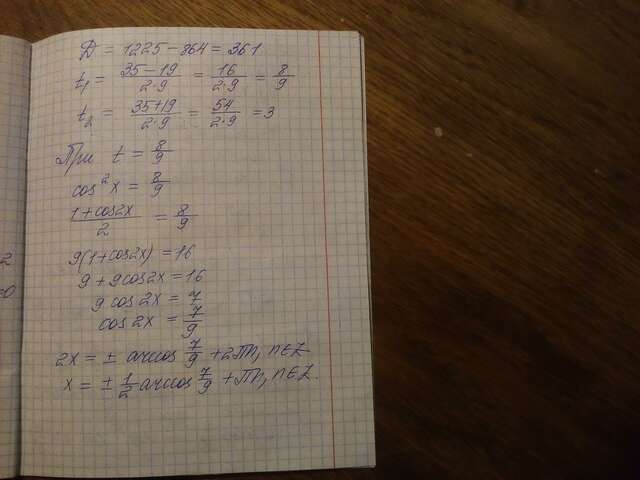 2
=0
D = 1225 - 864 = 361
t₁ = (35-19)/(2·9) = 16/(2·9) = 8/9
t₂ = (35+19)/(2·9) = 54/(2·9) = 3
При t = 8/9
cos²x = 8/9
(1+cos2x)/2 = 8/9
9(1+cos2x) = 16
9 + 9cos2x = 16
9cos2x = 7
cos2x = 7/9
2x = ± arccos 7/9 + 2πn, n∈Z
x = ± 1/2 arccos 7/9 + πn, n∈Z.